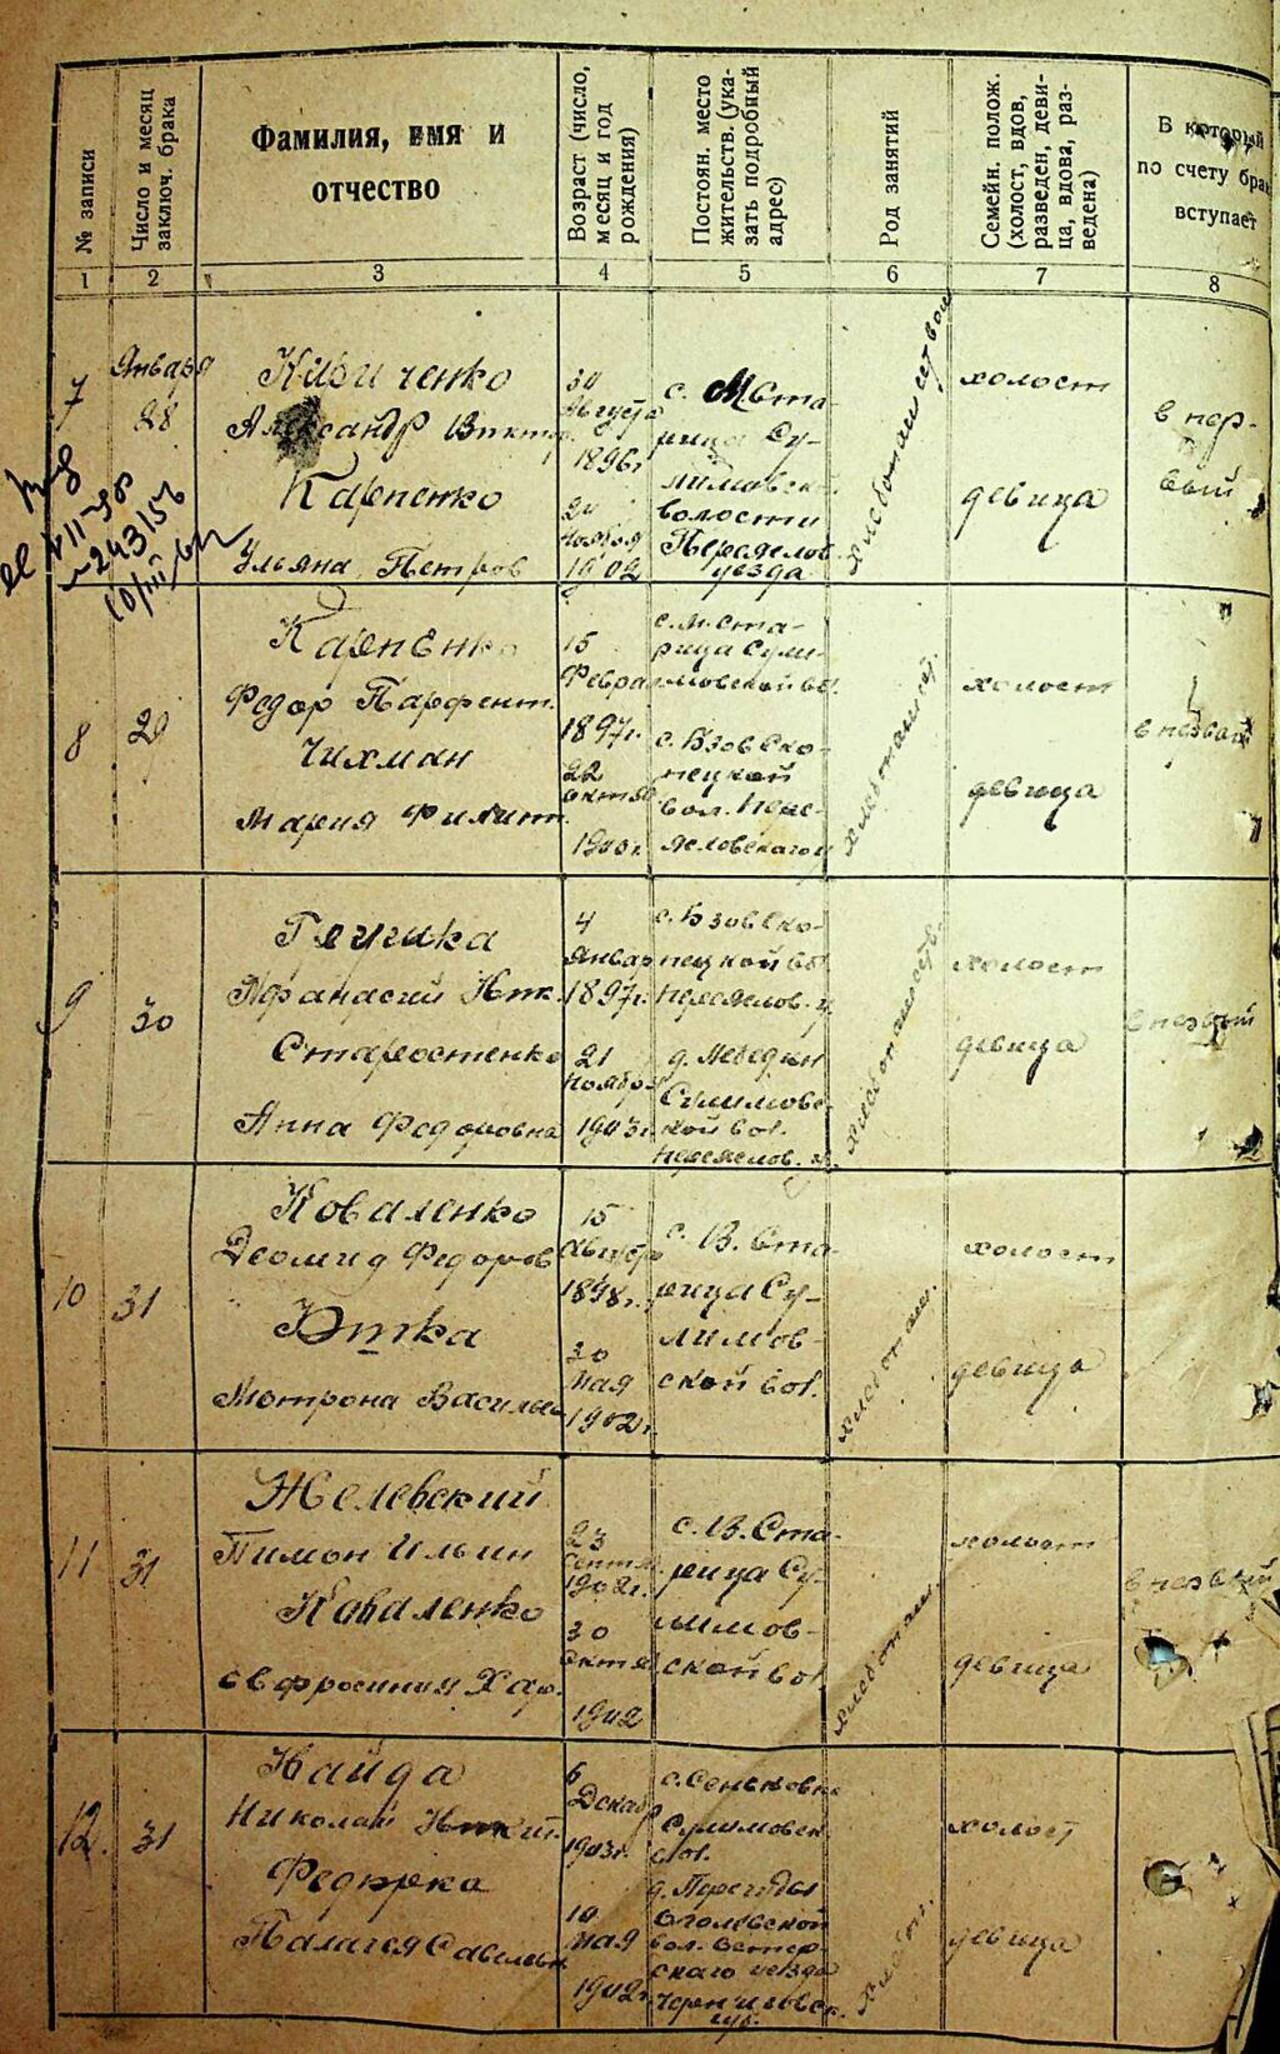 № записи
Число и месяц
заключ. брака
Фамилия, имя и
отчество
Возраст (число,
месяц и год
рождения)
Постоян. место
жительств. (ука-
зать подробный
адрес)
Род занятий
Семейн. полож.
(холост, вдов,
разведен, деви-
ца, вдова, раз-
ведена)
В который
по счету брак
вступает
1 2 3 4 5 6 7 8
7
Января
28
Кириченко
Александр Виктор.
Карпенко
Ульяна Петров
30
Августа
1896г
24
ноября
1902
с. М. Ста-
рица Су-
лимовск.
волости
Переяслов
уезда
хлебопашеством
холост
девица
в пер-
вый
8
29
Карпенко
Федор Парфент.
Чихман
Мария Филип.
15
Февра
1897г.
22
октяб
1900г.
с. М. Ста-
рица Сули-
мовской во.
с. Взов Ско-
пецкой
вол. Пере-
яславскаго у
хлебопашест.
холост
девица
в первый
9
30
Глушка
Афанасий Ник.
Старостенко
Анна Федоровна
4
Январ
1897г.
21
ноября
1903г.
с. Взов Ско-
пецкой во.
Переяслов. у
д. Лебедин
Сулимовс-
кой вол.
Переяслов. у.
хлебопашеств.
холост
девица
в первый
10
31
Коваленко
Деомид Федоров
Юшка
Мотрона Василье
15
1898г.
30
мая
1902г.
с. В. Ста-
рица Су-
лимов-
ской вол.
хлебопаш.
холост
девица
11
31
Желевский
Пимон Ильин
Коваленко
Евфросиния Хар.
23
сентяб.
1902г.
30
октяб
1902
с. В. Ста-
рица Су-
лимов-
ской вол
хлебопаш.
холост
девица
в первый
12.
31
Найда
Николай Никит.
Федорка
Палагея Савельев
6
Декаб
1903г.
10
мая
1902г.
с. Сеньковка
Сулимовск.
вол.
вол. Остер-
скаго уезда
Черниговск.
губ.
хлебоп.
холост
девица